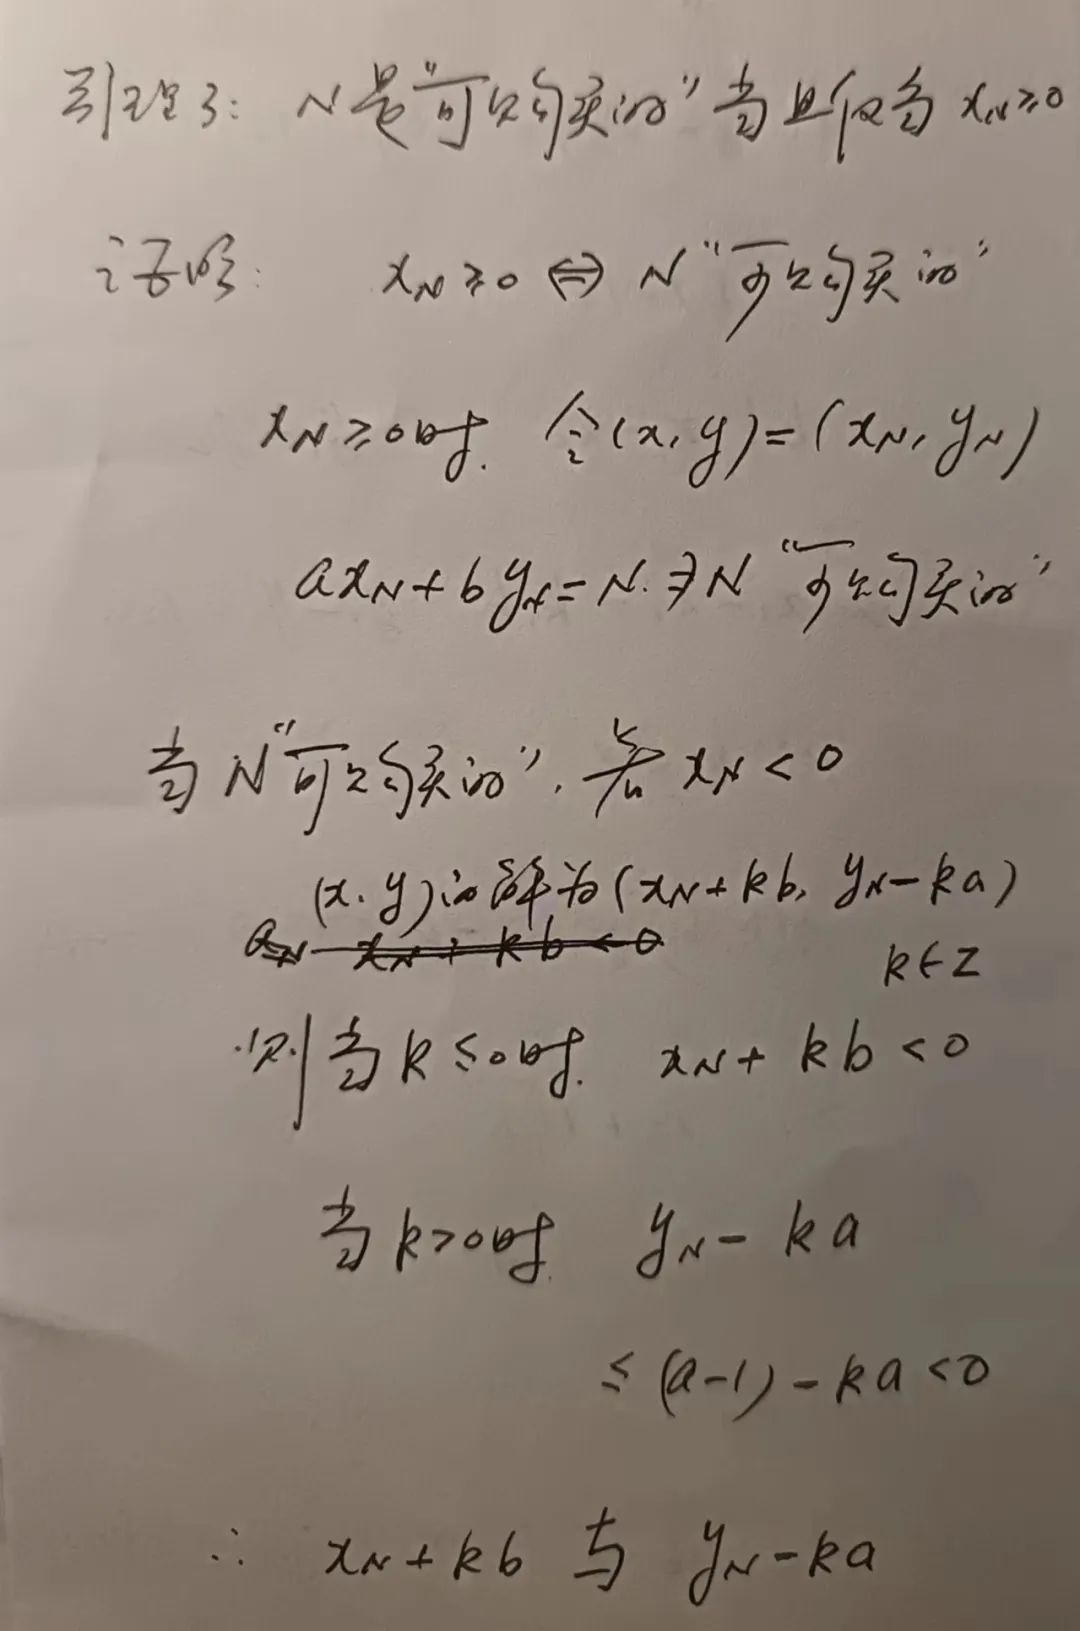 引理3: N是“可以购买的”当且仅当 xN≥0
证明: xN≥0 ⇔ N“可以购买的”
xN≥0时. 令(x,y)=(xN,yN)
axN+byN=N. ∴N“可以购买的”
当N“可以购买的”. 若xN<0
(x.y)的解为(xN+kb, yN-ka)
xN+kb<0
k∈Z
则当k≤0时. xN+kb<0
当k>0时. yN-ka
≤(a-1)-ka<0
∴ xN+kb 与 yN-ka